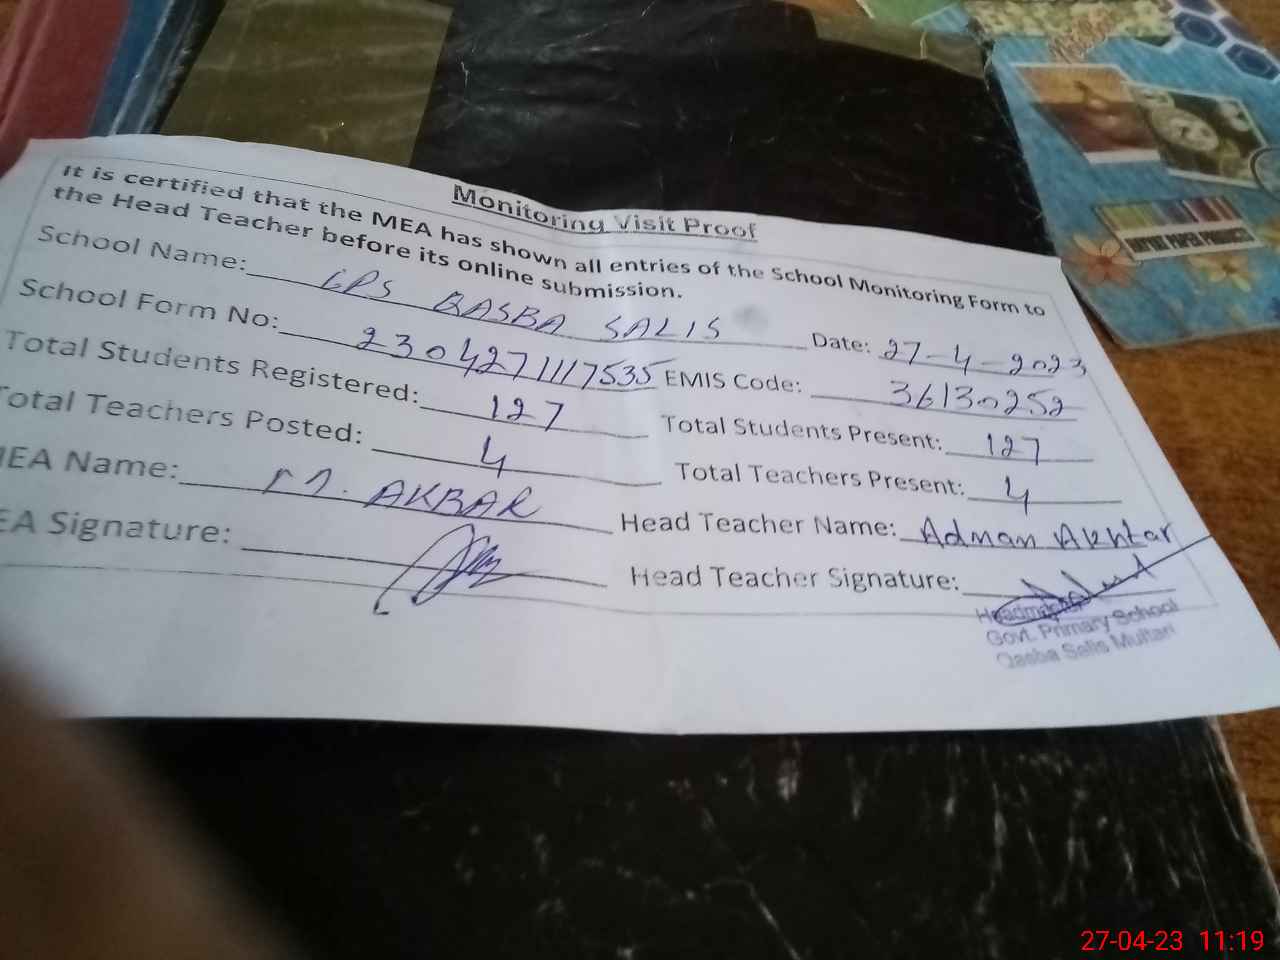 Monitoring Visit Proof
It is certified that the MEA has shown all entries of the School Monitoring Form to
the Head Teacher before its online submission.
School Name: GPS QASBA SALIS Date: 27-4-2023
School Form No: 2304271117535 EMIS Code: 36130252
Total Students Registered: 127 Total Students Present: 127
Total Teachers Posted: 4 Total Teachers Present: 4
MEA Name: M. AKBAR Head Teacher Name: Adnan Akhtar
EA Signature: Head Teacher Signature:
Headmaster
Govt. Primary School
Qasba Salis Multan
27-04-23 11:19